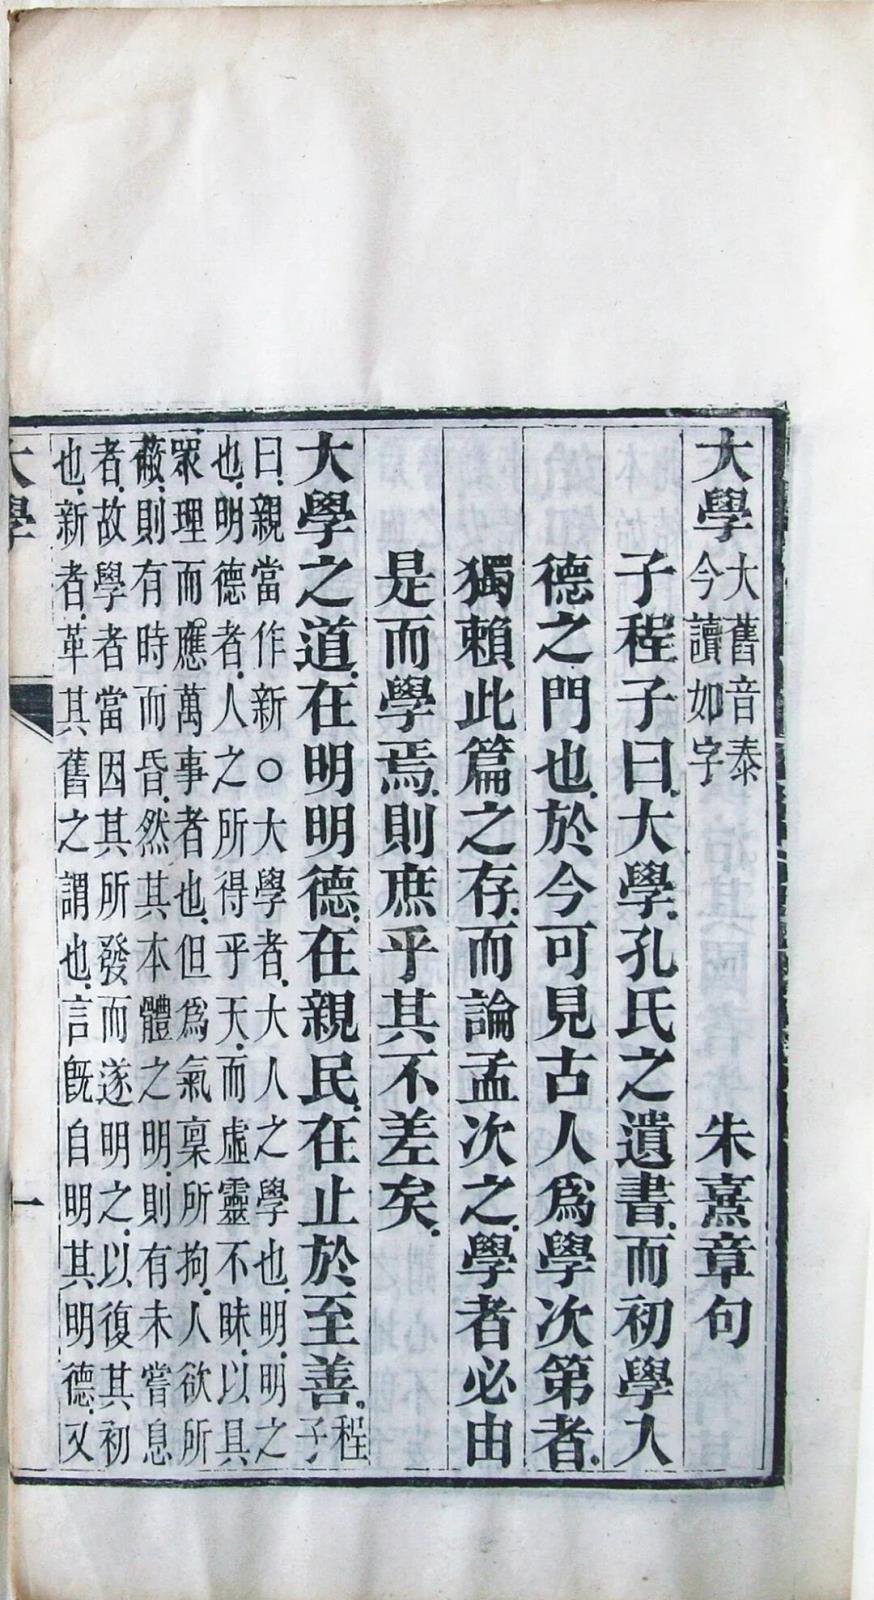 大學
大舊音泰
今讀如字
朱熹章句
子程子曰、大學、孔氏之遺書、而初學入
德之門也、於今可見古人爲學次第者、
獨賴此篇之存、而論孟次之、學者必由
是而學焉、則庶乎其不差矣、
大學之道、在明明德、在親民、在止於至善、程子
曰、親當作新○大學者、大人之學也、明、明之
也、明德者、人之所得乎天、而虛靈不昧、以具
眾理而應萬事者也、但爲氣稟所拘、人欲所
蔽、則有時而昏、然其本體之明、則有未嘗息
者、故學者當因其所發而遂明之、以復其初
也、新者、革其舊之謂也、言旣自明其明德、又
大學
一